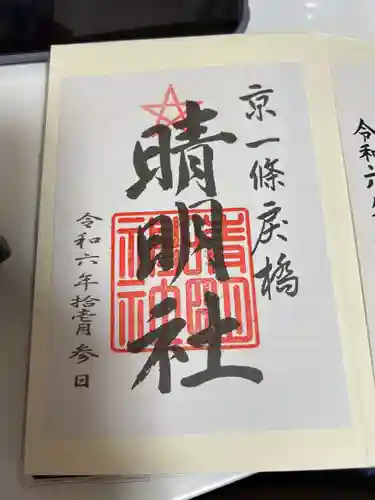 京一條戻橋
晴明社
晴明神社
令和六年拾壱月参日
令和六年